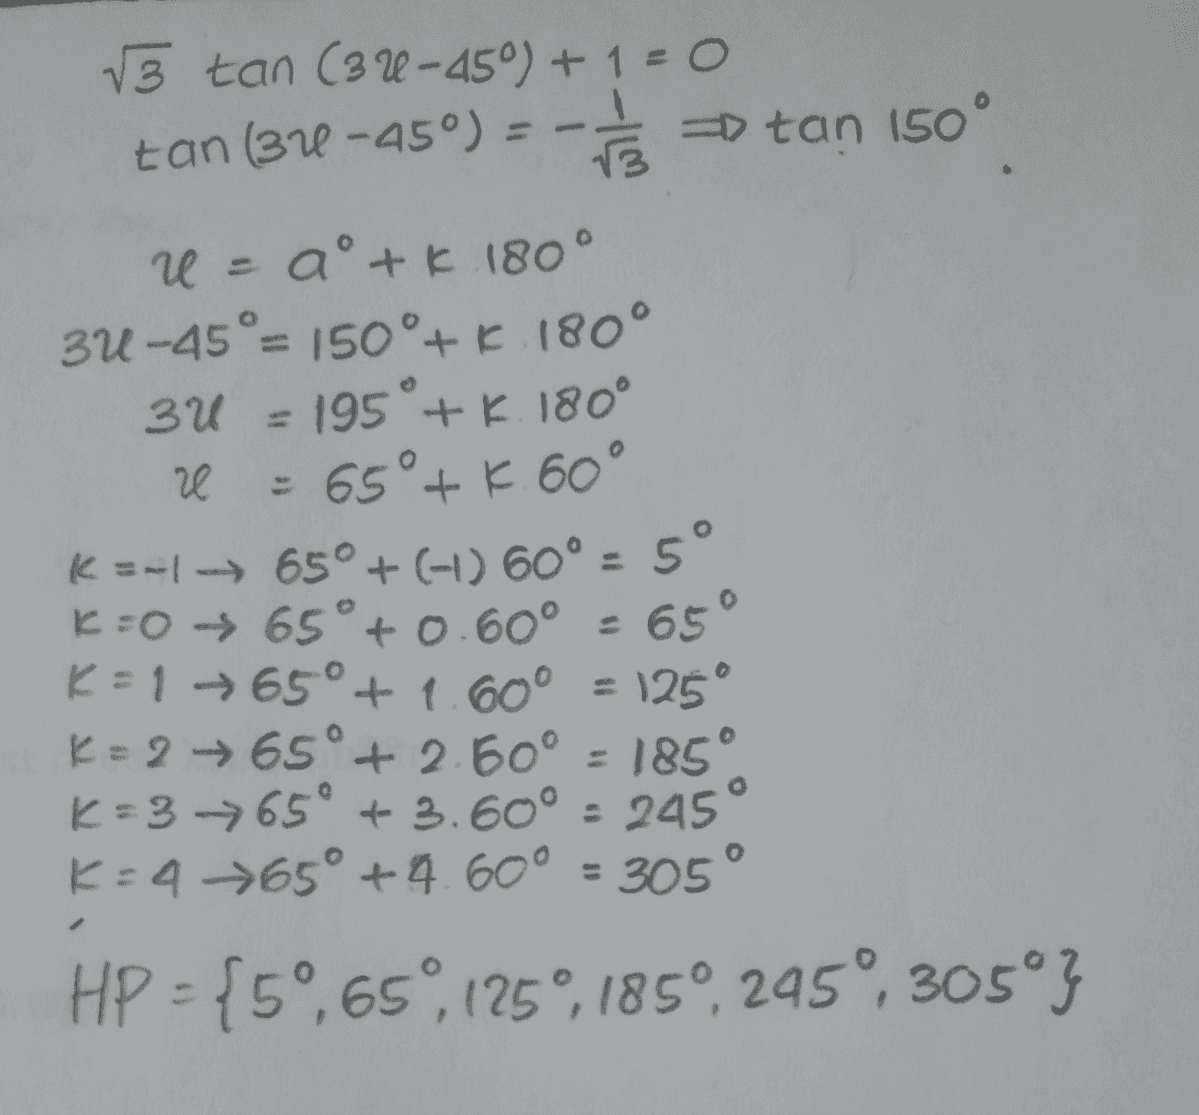 √3 tan (3x-45°) + 1 = 0
tan (3x-45°) = -1/√3 ⇒ tan 150°.
x = a° + k 180°
3x-45° = 150° + k. 180°
3x = 195° + k. 180°
x = 65° + k. 60°
k = -1 → 65° + (-1) 60° = 5°
k = 0 → 65° + 0.60° = 65°
k = 1 → 65° + 1.60° = 125°
k = 2 → 65° + 2.60° = 185°
k = 3 → 65° + 3.60° = 245°
k = 4 → 65° + 4.60° = 305°
HP = {5°, 65°, 125°, 185°, 245°, 305°}